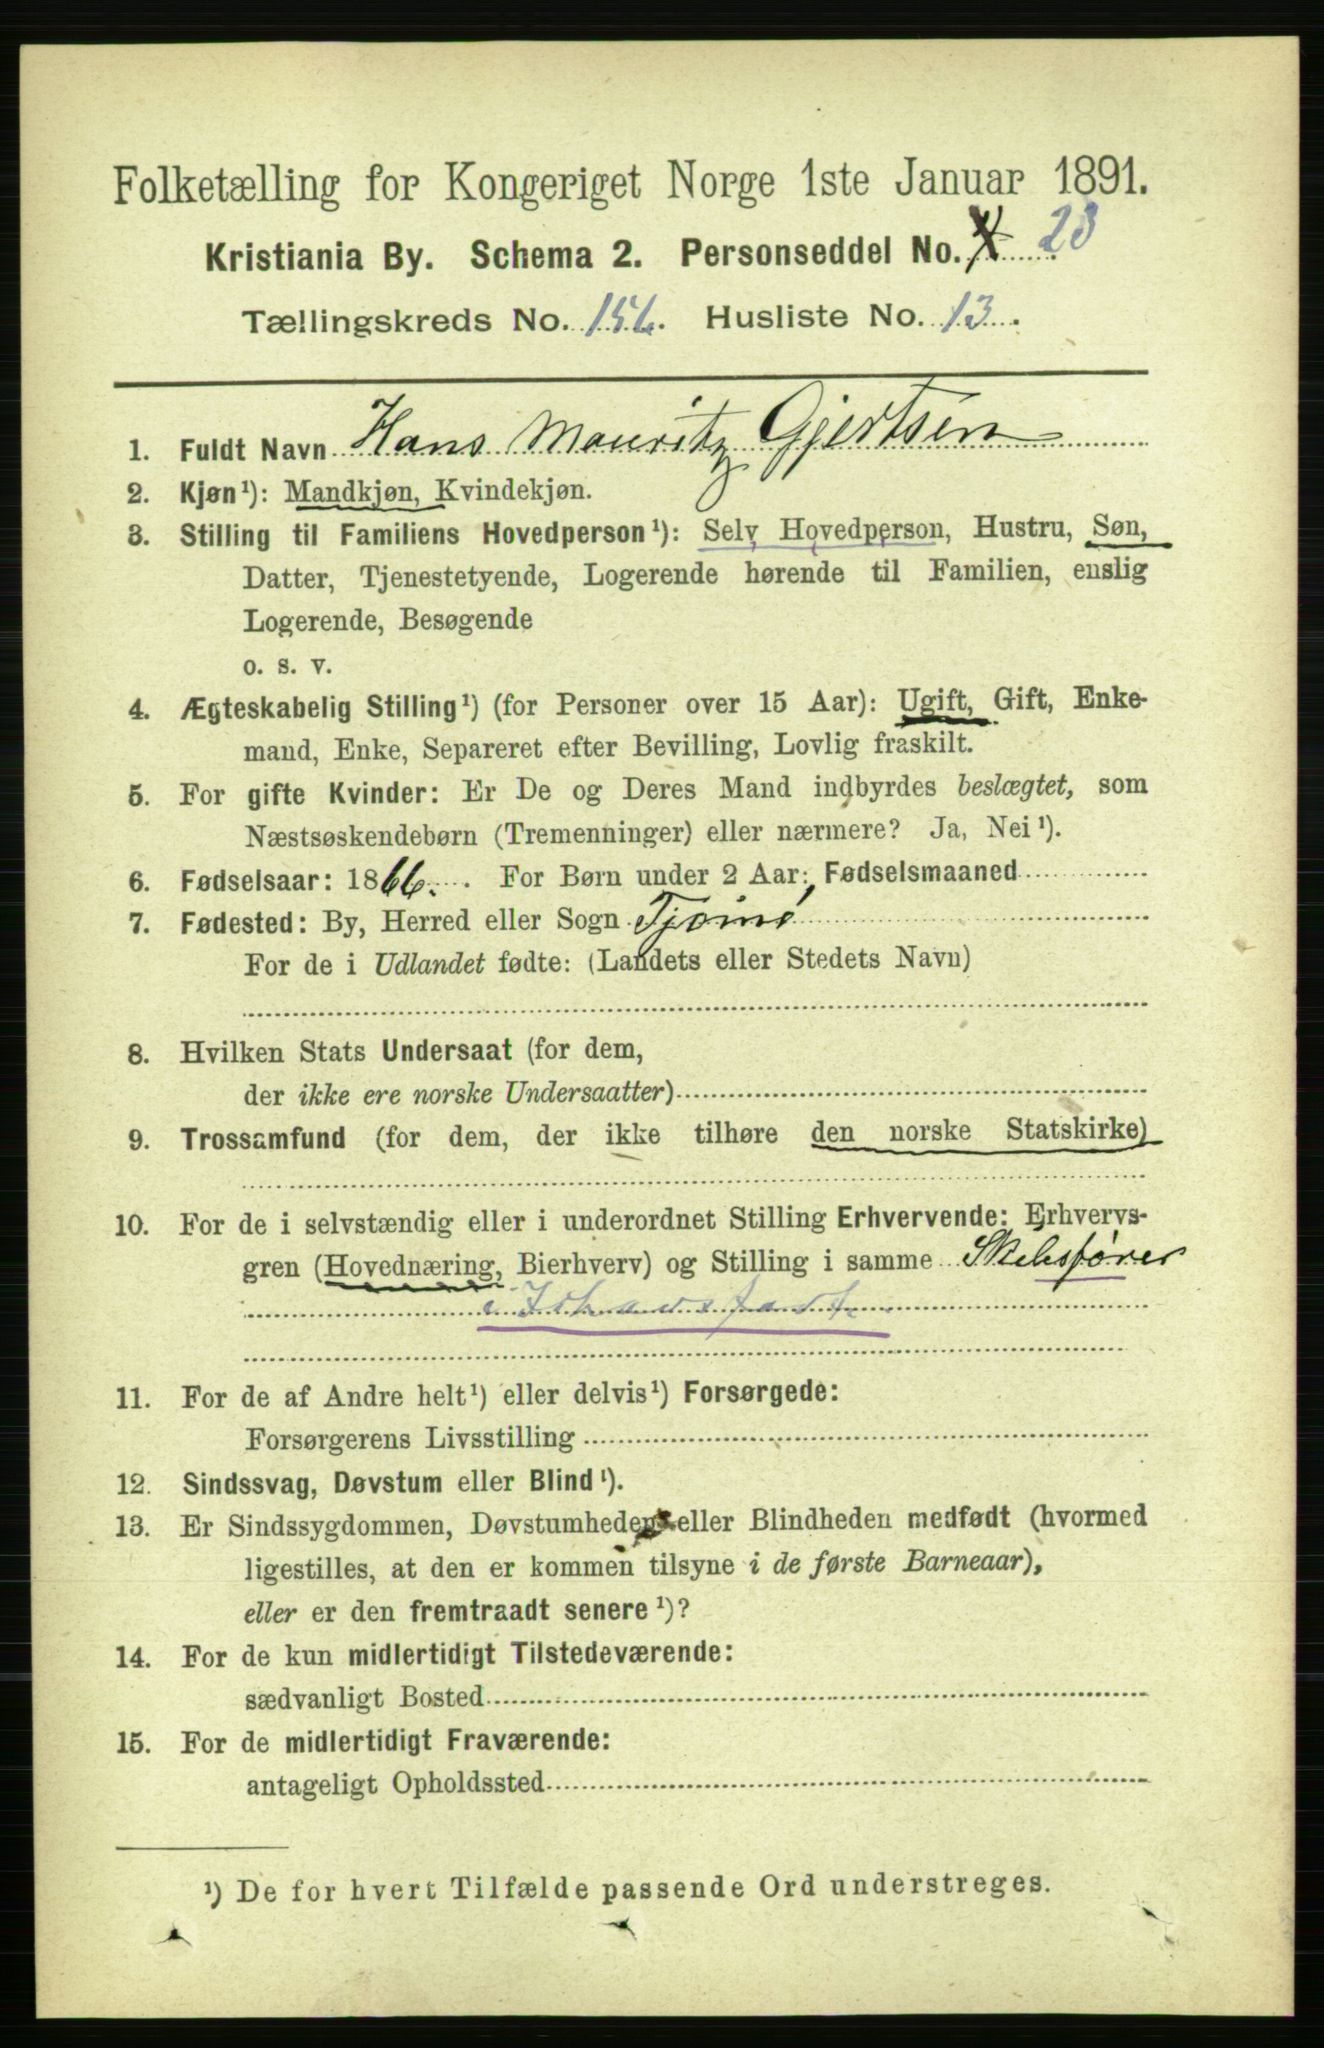 Folketælling for Kongeriget Norge 1ste Januar 1891.
Kristiania By. Schema 2. Personseddel No. 23
Tællingskreds No. 156. Husliste No. 13.
1. Fuldt Navn Hans Mauritz Gjertsen
2. Kjøn¹): Mandkjøn, Kvindekjøn.
3. Stilling til Familiens Hovedperson¹): Selv Hovedperson, Hustru, Søn,
Datter, Tjenestetyende, Logerende hørende til Familien, enslig
Logerende, Besøgende
o. s. v.
4. Ægteskabelig Stilling¹) (for Personer over 15 Aar): Ugift, Gift, Enke-
mand, Enke, Separeret efter Bevilling, Lovlig fraskilt.
5. For gifte Kvinder: Er De og Deres Mand indbyrdes beslægtet, som
Næstsøskendebørn (Tremenninger) eller nærmere? Ja, Nei¹).
6. Fødselsaar: 1866. For Børn under 2 Aar: Fødselsmaaned
7. Fødested: By, Herred eller Sogn Tjømø
For de i Udlandet fødte: (Landets eller Stedets Navn)
8. Hvilken Stats Undersaat (for dem,
der ikke ere norske Undersaatter)
9. Trossamfund (for dem, der ikke tilhøre den norske Statskirke)
10. For de i selvstændig eller i underordnet Stilling Erhvervende: Erhvervs-
gren (Hovednæring, Bierhverv) og Stilling i samme Skibsfører
i
11. For de af Andre helt¹) eller delvis¹) Forsørgede:
Forsørgerens Livsstilling
12. Sindssvag, Døvstum eller Blind¹).
13. Er Sindssygdommen, Døvstumheden eller Blindheden medfødt (hvormed
ligestilles, at den er kommen tilsyne i de første Barneaar),
eller er den fremtraadt senere¹)?
14. For de kun midlertidigt Tilstedeværende:
sædvanligt Bosted
15. For de midlertidigt Fraværende:
antageligt Opholdssted
¹) De for hvert Tilfælde passende Ord understreges.